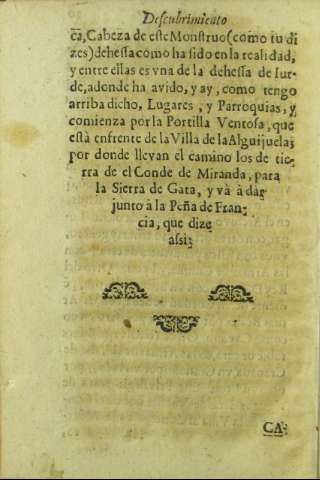 Descubrimiento
ca, Cabeza de este Monstruo (como tu di
zes) dehessa como ha sido en la realidad,
y entre ellas es vna de la dehessa de Iur-
de, adonde ha avido, y ay, como tengo
arriba dicho, Lugares, y Parroquias, y
comienza por la Portilla Ventosa, que
està enfrente de la Villa de la Alguijuela;
por donde llevan el camino los de tie-
rra de el Conde de Miranda, para
la Sierra de Gata, y và à dar
junto à la Peña de Fran-
cia, que dize
assi:
CA-